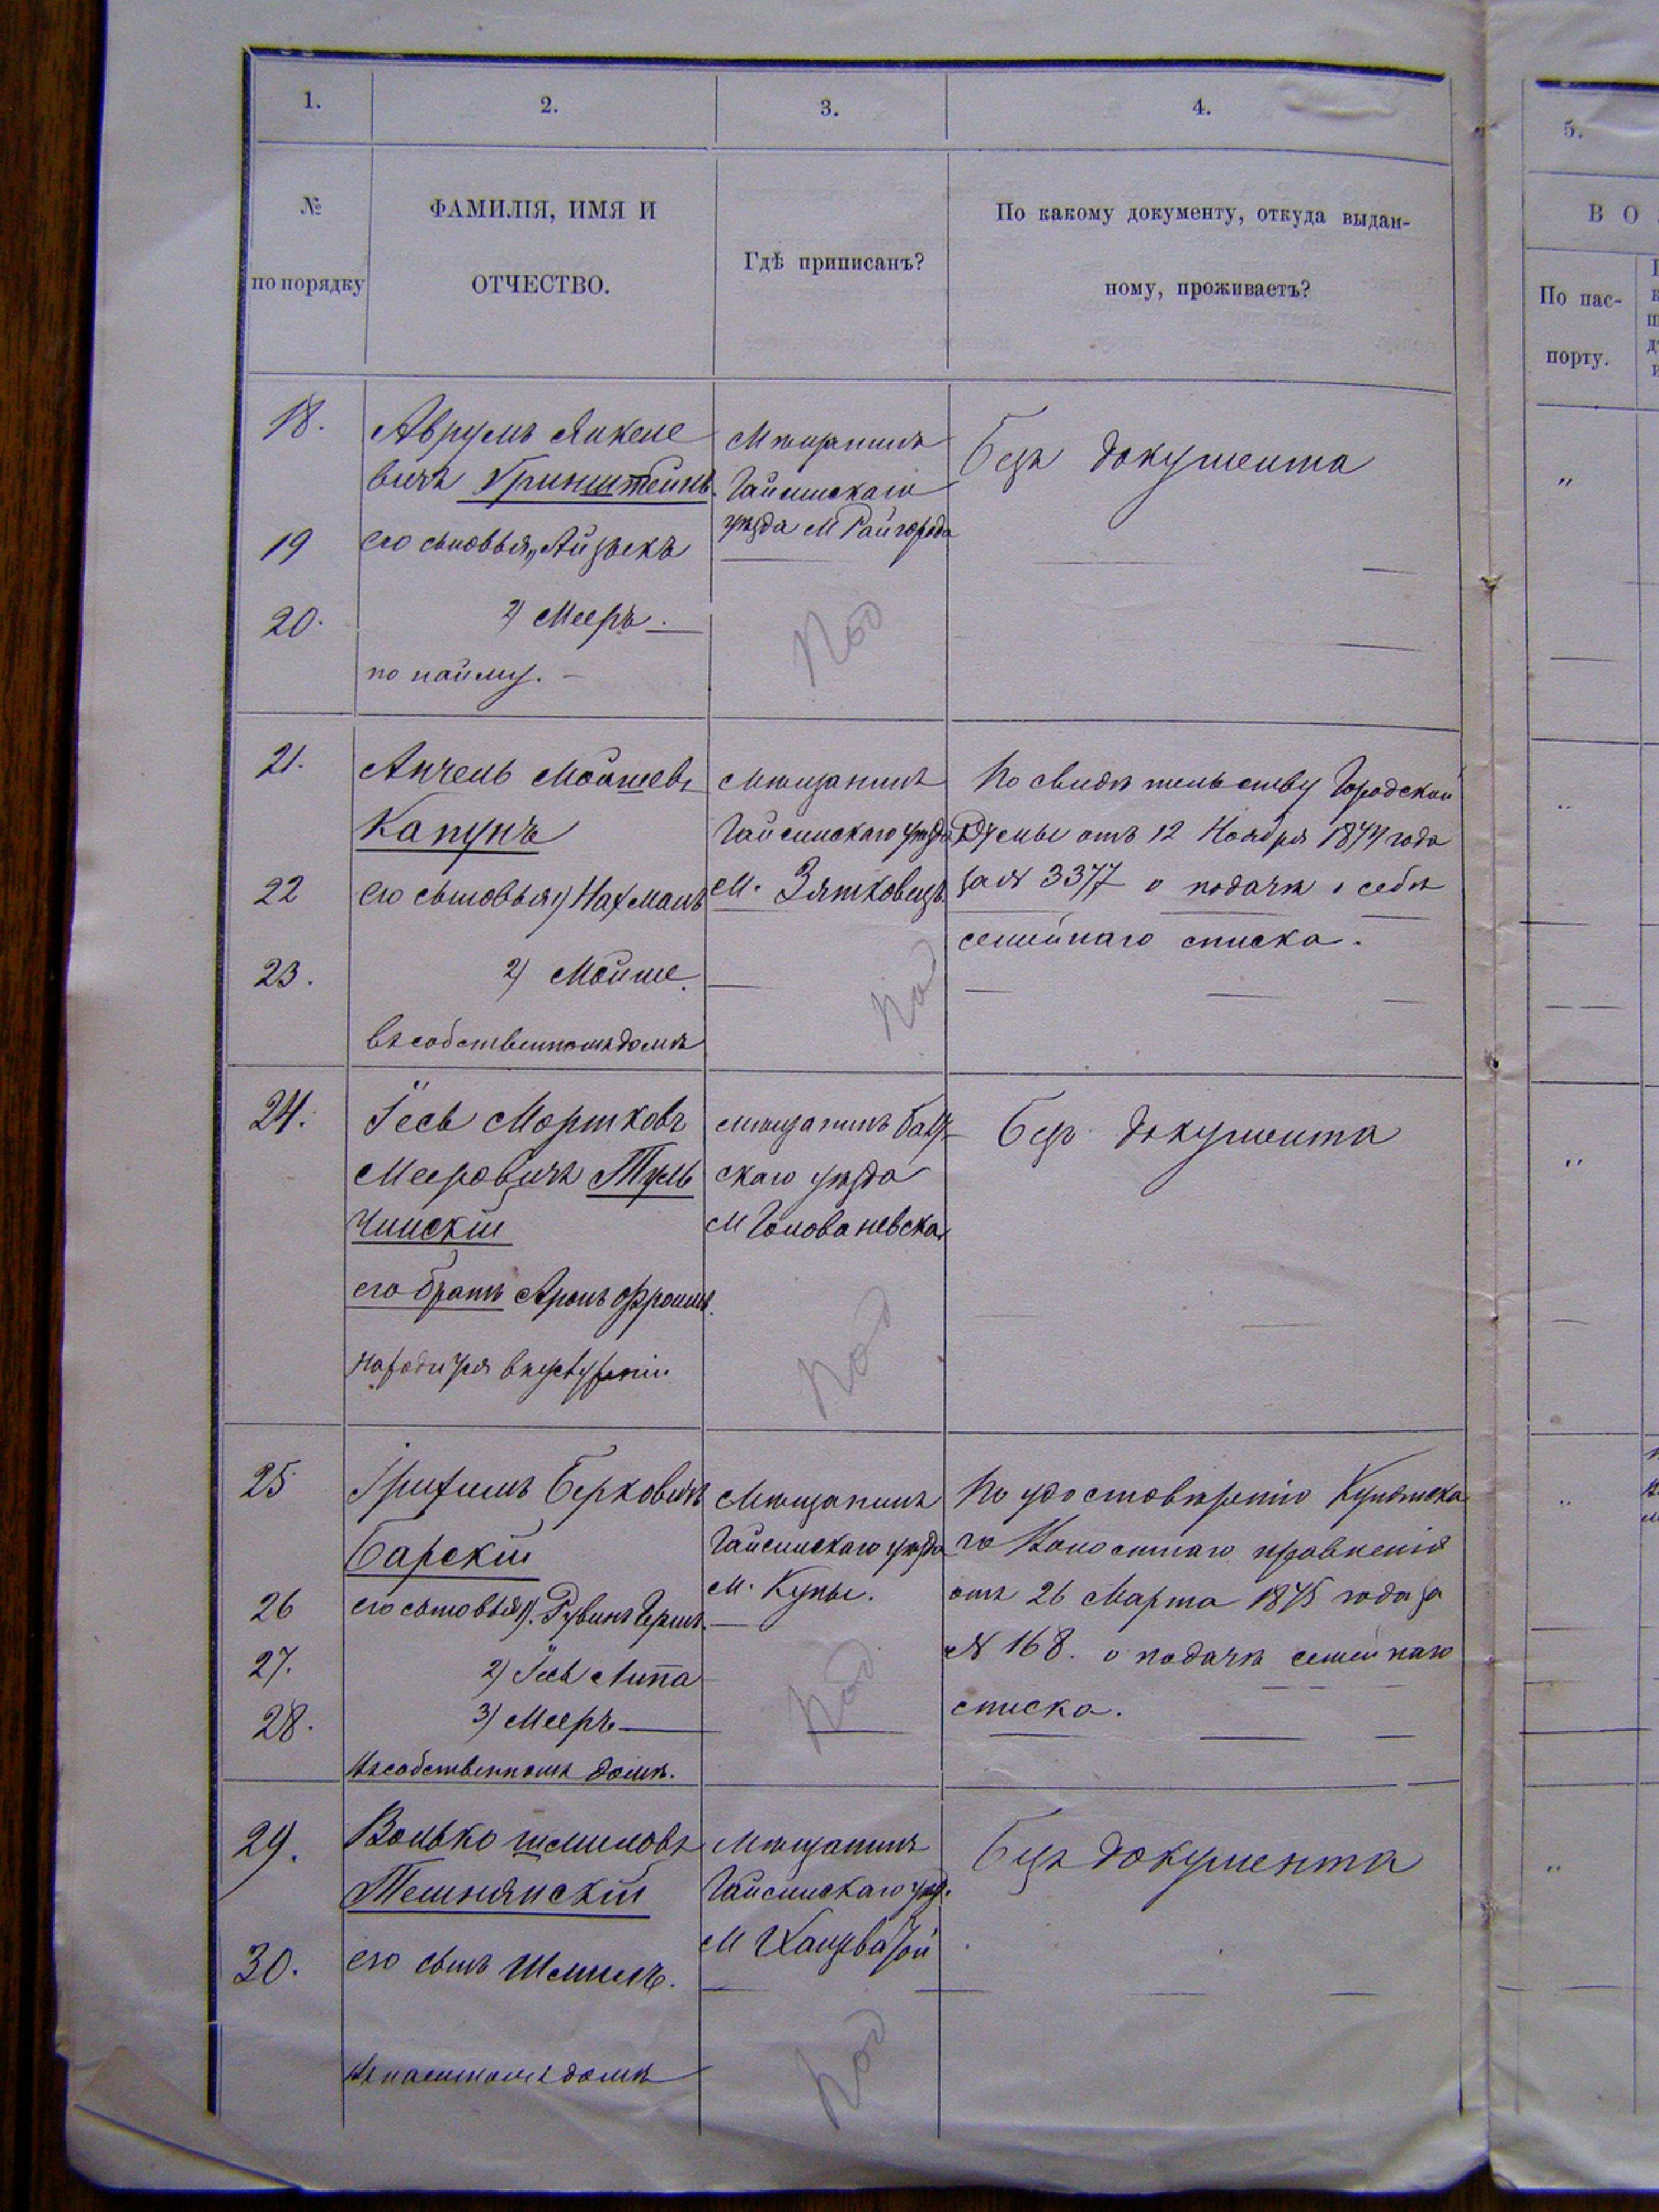 1.
2.
3.
4.
5.
№
по порядку
ФАМИЛІЯ, ИМЯ И
ОТЧЕСТВО.
Гдѣ приписанъ?
По какому документу, откуда выдан-
ному, проживаетъ?
В О
По пас-
порту.
18.
Аврумъ Янкеле
вичъ Гринштейнъ.
Мѣщанинъ
Гайсинскаго
уѣзда М Райгорода
Безъ документа
19
его сыновья, Айзыкъ
20.
2) Мееръ.
по найму.
Под
21.
Анчель Мошев
Капунъ
Мѣщанинъ
Гайсинскаго уѣзда
М. Зятковецъ
По свидѣтельству Городской
Думы отъ 12 Ноября 1874 года
за № 3377 о подачѣ о себѣ
семейнаго списка.
22
его сыновья 1) Нахманъ
23.
2) Мойше.
въ собственномъ домѣ
Под
24.
Іось Мортковъ
Мееровичъ Туль
чинскій
его братъ Аронъ Фроимъ.
Мѣщанинъ Балт
скаго уѣзда
М Голованевска
Безъ документа
Под
25
Ірихимъ Берковичъ
Барскій
Мѣщанинъ
Гайсинскаго уѣзда
М. Куны.
По удостовѣренію Кунянска
го Волостнаго правленія
отъ 26 Марта 1875 года за
№ 168. о подачѣ семейнаго
списка.
26
его сыновья 1). Рувинъ Гершъ.
27.
2) Іось Липа
28.
3) Мееръ
въ собственномъ домѣ.
Под
29.
Волько Шмилов
Тешнянскій
Мѣщанинъ
Гайсинскаго уѣз.
М Хащеватой
Безъ документа
30.
его сынъ Шмиль.
въ наемномъ домѣ
Под